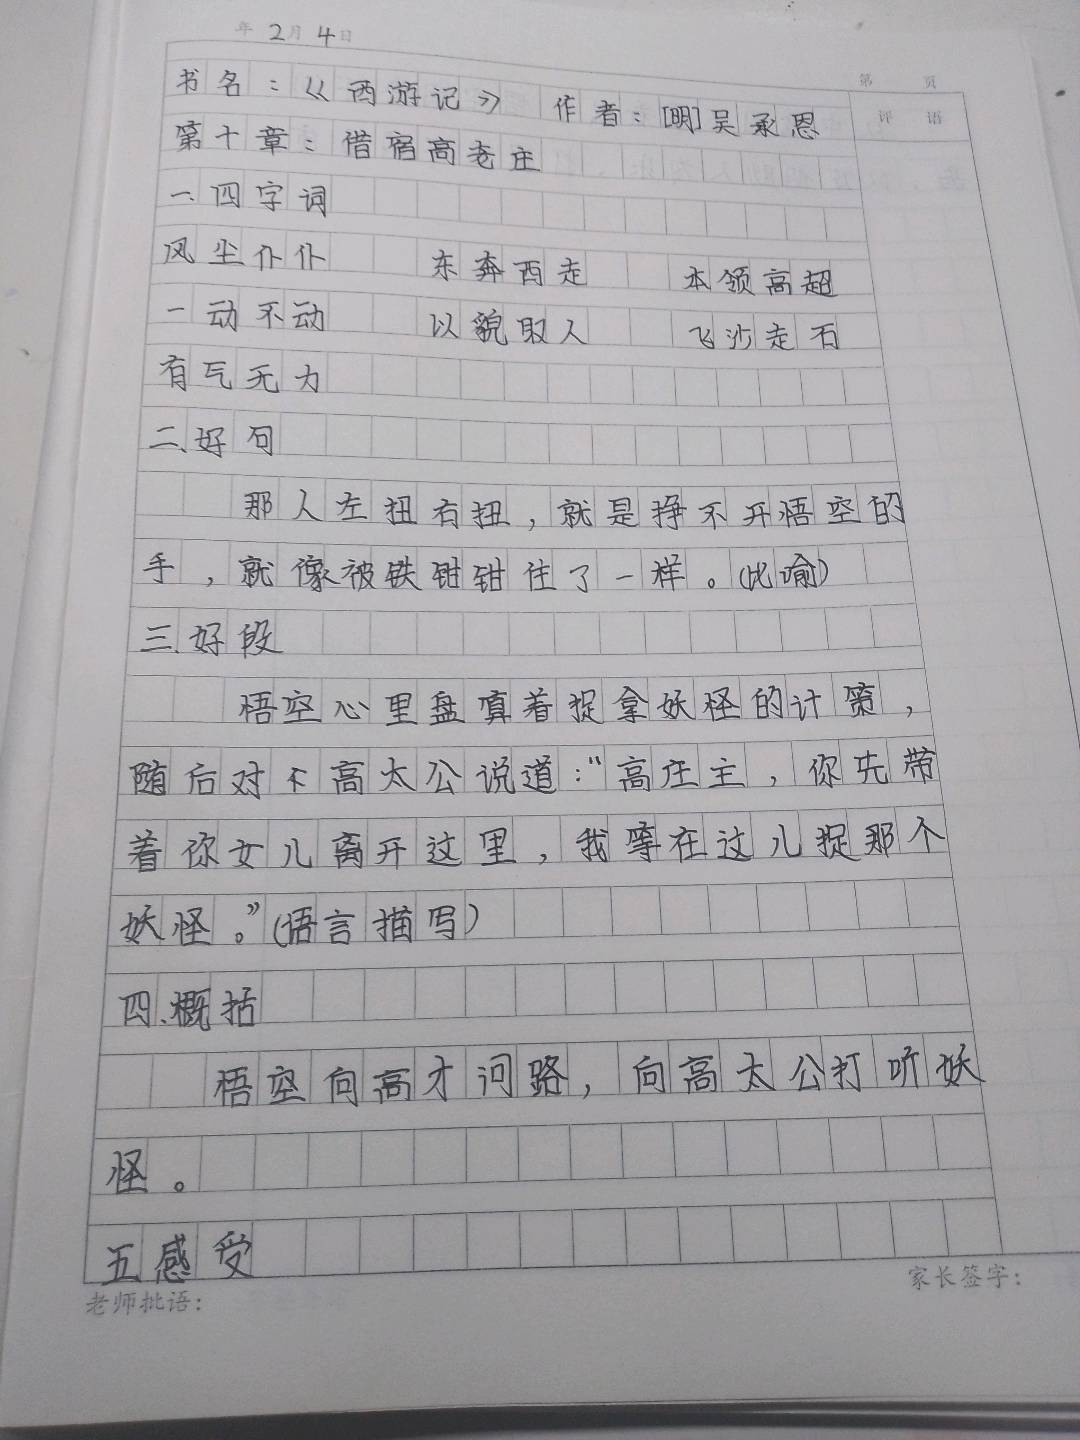 年2月4日
第 页
书名：《西游记》 作者：[明]吴承恩
评 语
第十章：借宿高老庄
一、四字词
风尘仆仆 东奔西走 本领高超
一动不动 以貌取人 飞沙走石
有气无力
二、好句
那人左扭右扭，就是挣不开悟空的
手，就像被铁钳钳住了一样。(比喻)
三、好段
悟空心里盘算着捉拿妖怪的计策，
随后对高太公说道："高庄主，你先带
着你女儿离开这里，我等在这儿捉那个
妖怪。"(语言描写)
四、概括
悟空向高才问路，向高太公打听妖
怪。
五感受
老师批语：
家长签字：